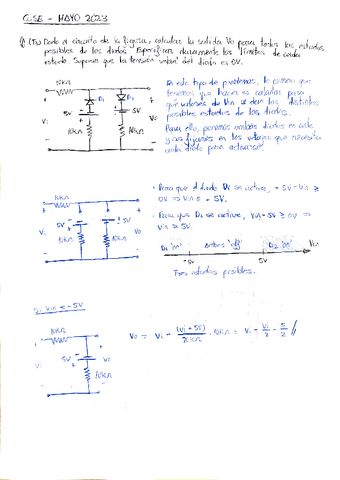 GSE - MAYO 2023
1) (7p) Dado el circuito de la figura, calcular la salida Vo para todos los estados
posibles de los diodos. Especificar claramente los límites de cada
estado. Suponer que la tensión umbral del diodo es 0V.
10kΩ
D1
D2
5V
5V
Vi
Vo
10kΩ
10kΩ
En este tipo de problemas, lo primero que
tenemos que hacer es calcular para
qué valores de Vin se dan los distintos
posibles estados de los diodos.
Para ello, ponemos ambos diodos en
y nos fijamos en los voltajes que necesita
cada diodo para activarse.
10kΩ
5V
5V
Vi
Vo
10kΩ
10kΩ
· Para que el diodo D1 se active, -5V - Vin ≥
0V ⇒ Vin ≤ -5V.
· Para que D2 se active, Vin - 5V ≥ 0V ⇒
Vin ≥ 5V.
D1 "on"
Ambos "off"
D2 "on"
Vin
-5V
5V
Tres estados posibles.
Si Vin < -5V
10kΩ
Vi
5V
Vo
10kΩ
Vo = Vi - (Vi + 5V) / 20kΩ · 10kΩ = Vi - Vi/2 - 5/2 //